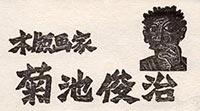 木版画家
菊池俊治